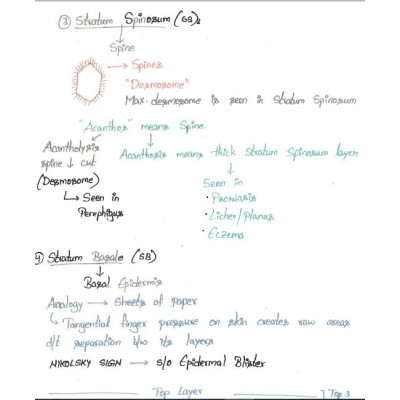 ③ Stratum Spinosum (SS)
Spine
→ Spines
"Desmosome"
Max. desmosome is seen in Stratum Spinosum
"Acanthos" means Spine
Acantholysis
spine ↓ cut
(Desmosome)
↳ Seen in
Pemphigus
Acanthosis means thick Stratum Spinosum layer
Seen in
• Psoriasis
• Lichen Planus
• Eczema
4) Stratum Basale (SB)
Basal Epidermis
Analogy → Sheets of paper
↳ Tangential finger pressure on skin creates raw areas
d/t separation b/w its layers
NIKOLSKY SIGN → s/o Epidermal Blister
Top Layer
Top 3